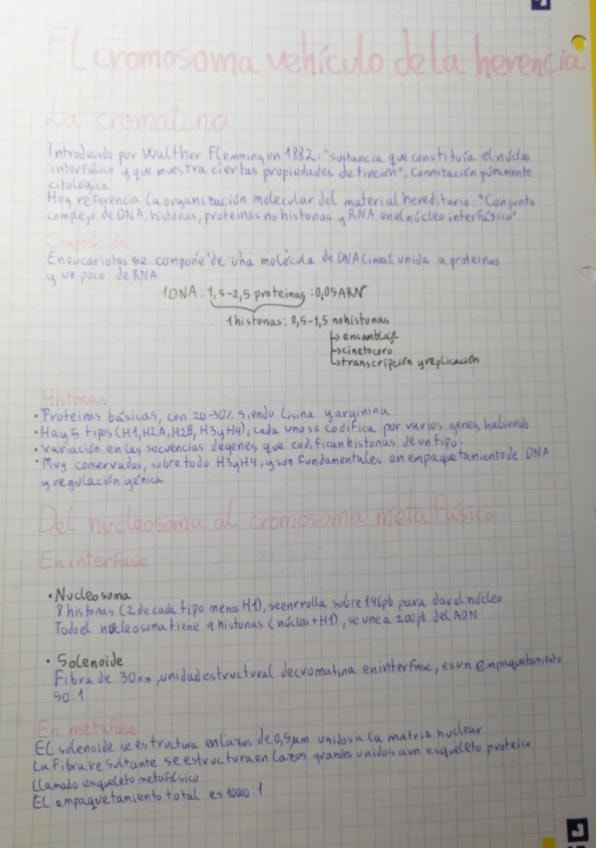 El cromosoma vehículo de la herencia
La cromatina
Introducido por Walther Flemming en 1882: "sustancia que constituía el núcleo
interfásico y que muestra ciertas propiedades de tinción", Connotación puramente
citológica
Hoy referencia la organización molecular del material hereditario: "Conjunto
complejo de DNA, histonas, proteínas no histonas y RNA en el núcleo interfásico"
Composición
En eucariotas se compone de una molécula de DNA lineal unida a proteínas
y un poco de RNA
1DNA: 1,5-2,5 proteinas : 0,05ARN
1 histonas: 0,5-1,5 no histonas
↳ ensamblaje
↳ cinetocoro
↳ transcripción y replicación
Histonas
• Proteínas básicas, con 20-30% siendo Lisina y arginina
• Hay 5 tipos (H1, H2A, H2B, H3 y H4), cada uno se codifica por varios genes, habiendo
• variación en las secuencias de genes que codifican histonas de un tipo.
• Muy conservadas, sobre todo H3 y H4, y son fundamentales en empaquetamiento de DNA
y regulación génica
Del nucleosoma al cromosoma metafásico
En interfase
• Nucleosoma
8 histonas (2 de cada tipo menos H1), se enrrolla sobre 146pb para dar el núcleo
Todo el nucleosoma tiene 9 histonas (núcleo + H1), se une a 200 pb del ADN
• Solenoide
Fibra de 30nm, unidad estructural de cromatina en interfase, es un empaquetamiento
50:1
En metafase
El solenoide se estructura en lazos de 0,5µm unidos a la matriz nuclear
La fibra resultante se estructura en lazos grandes unidos a un esqueleto proteico
llamado esqueleto metafásico
El empaquetamiento total es 10000:1